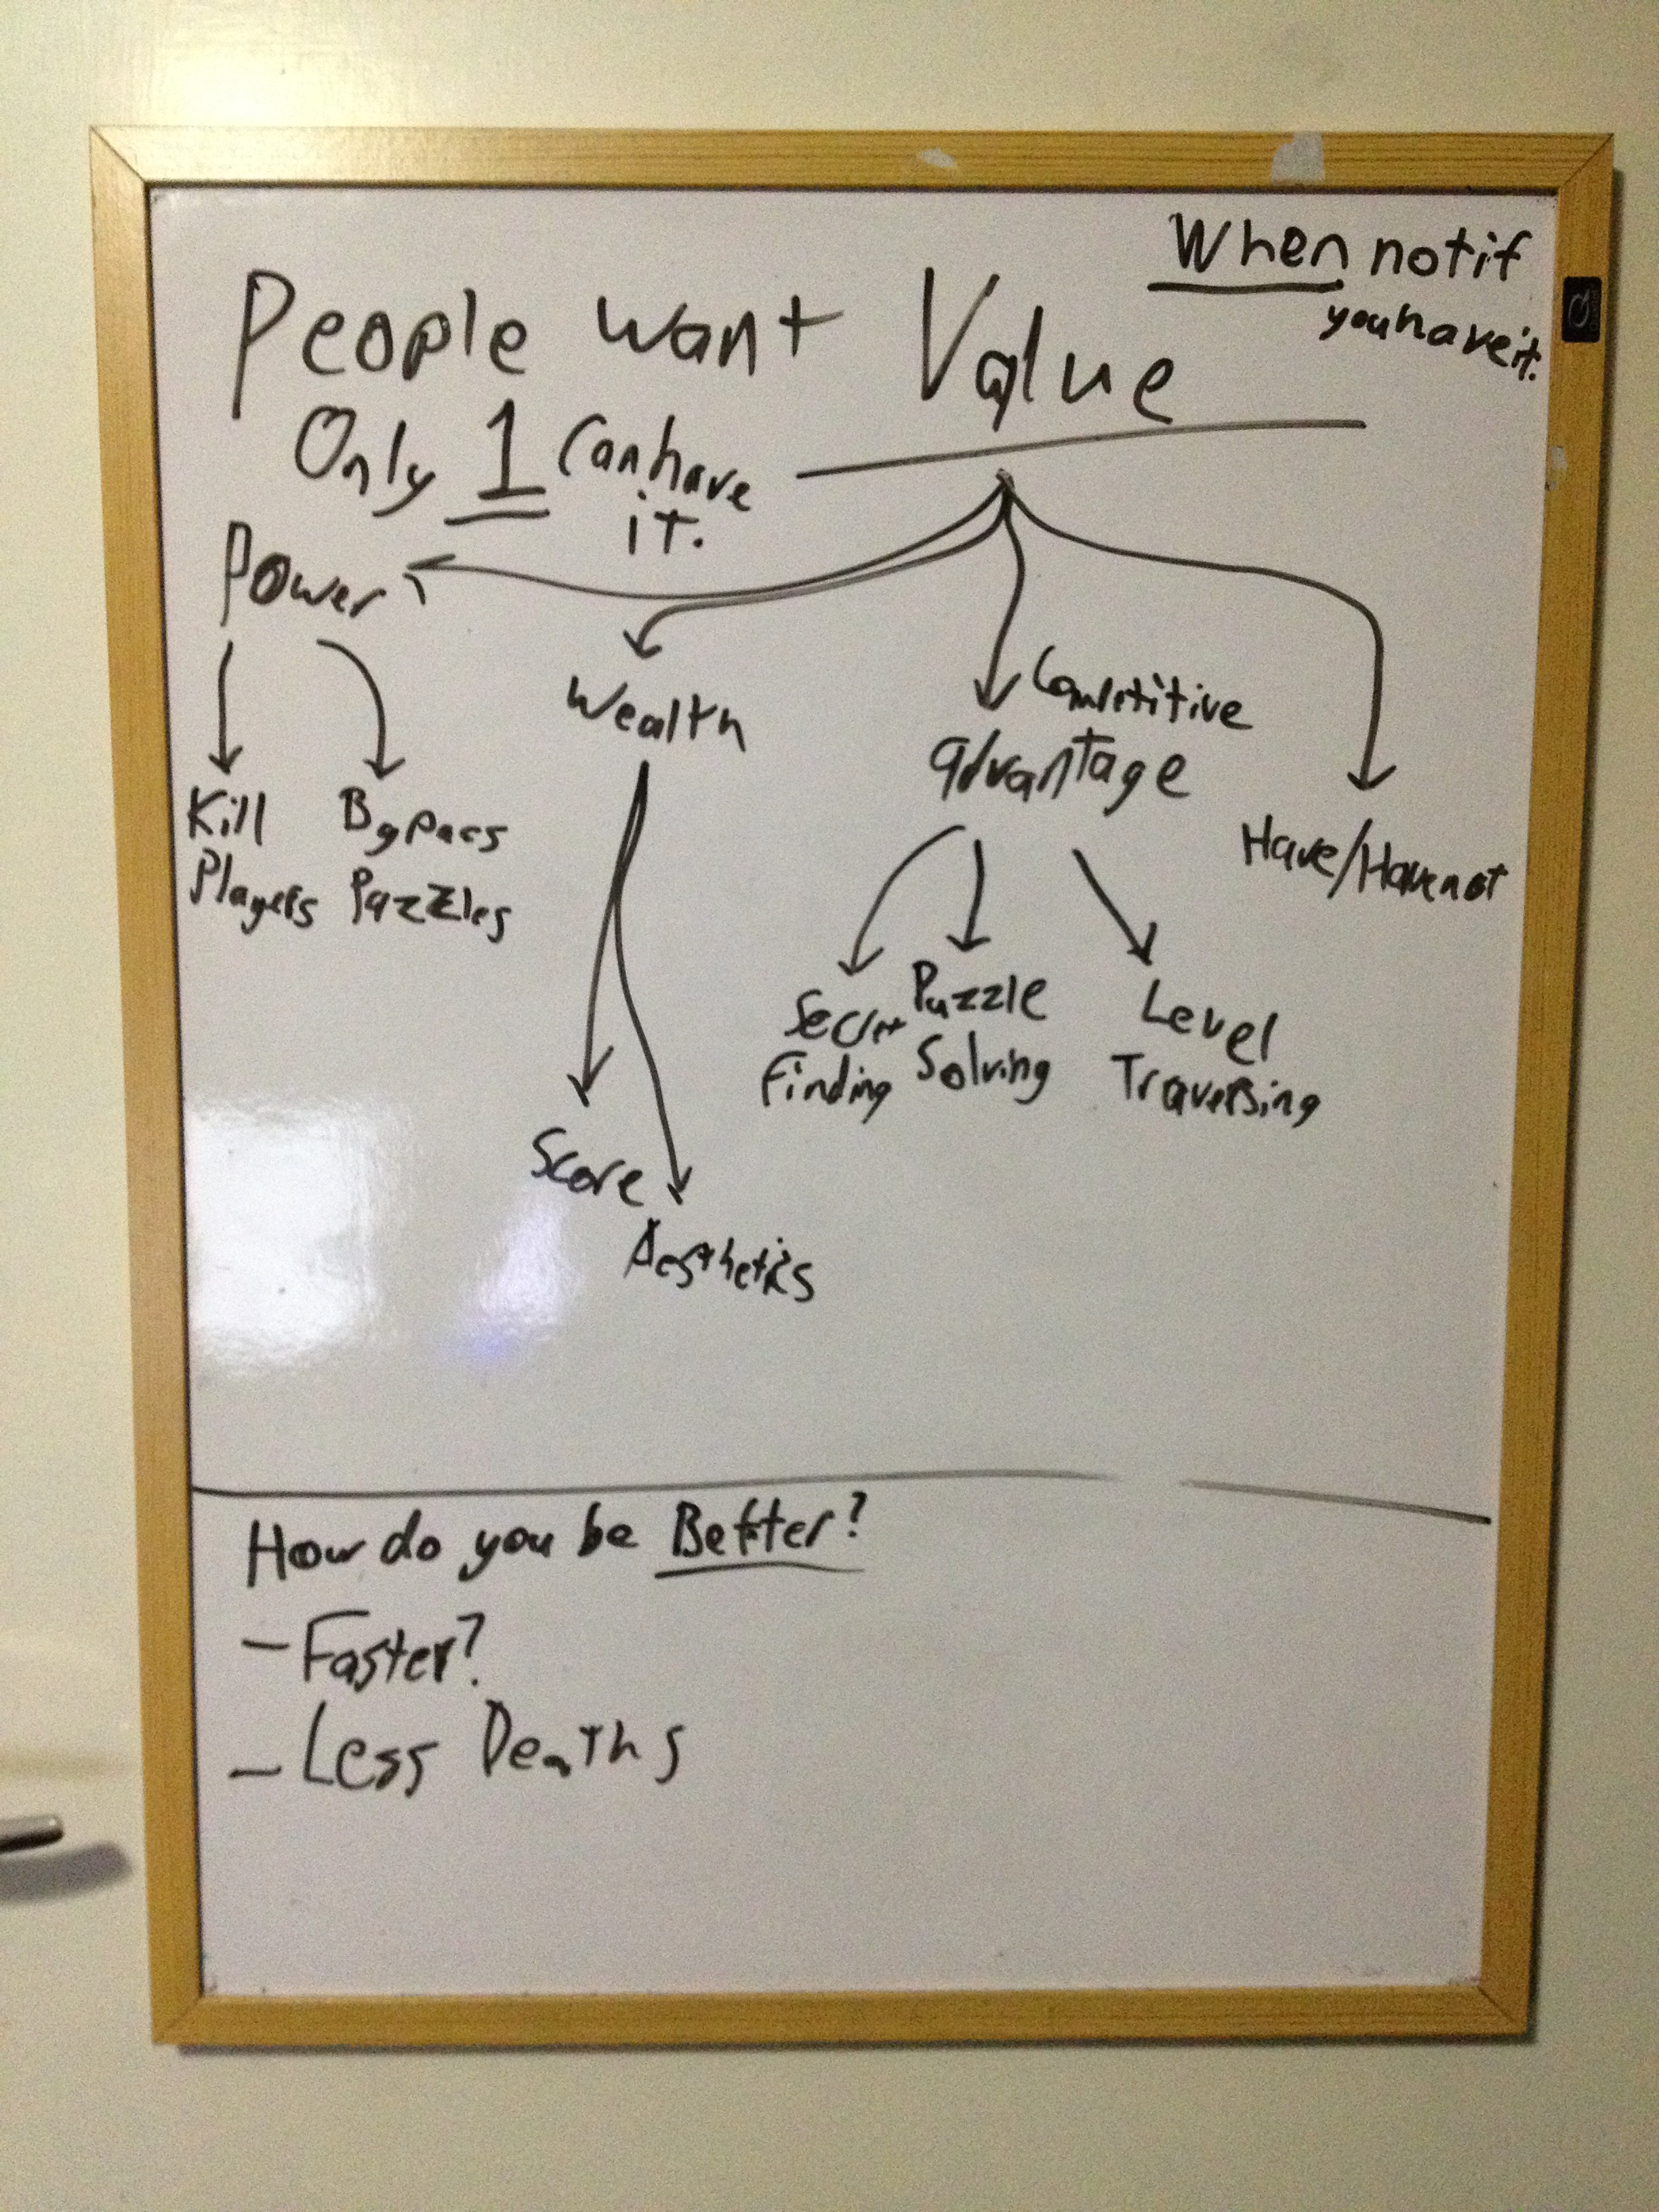 When not if
you have it.
People want Value
Only 1 Can have
it.
Power
Wealth
Competitive
advantage
Have/Have not
Kill
Players
Bypass
Puzzles
Secret
Finding
Puzzle
Solving
Level
Traversing
Score
Aesthetics
How do you be Better?
- Faster?
- Less Deaths